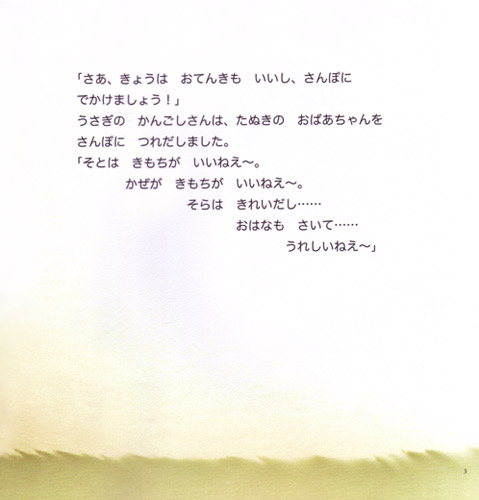 「さあ、きょうは　おてんきも　いいし、さんぽに
でかけましょう！」
うさぎの　かんごしさんは、たぬきの　おばあちゃんを
さんぽに　つれだしました。
「そとは　きもちが　いいねえ〜。
かぜが　きもちが　いいねえ〜。
そらは　きれいだし……
おはなも　さいて……
うれしいねえ〜」
3